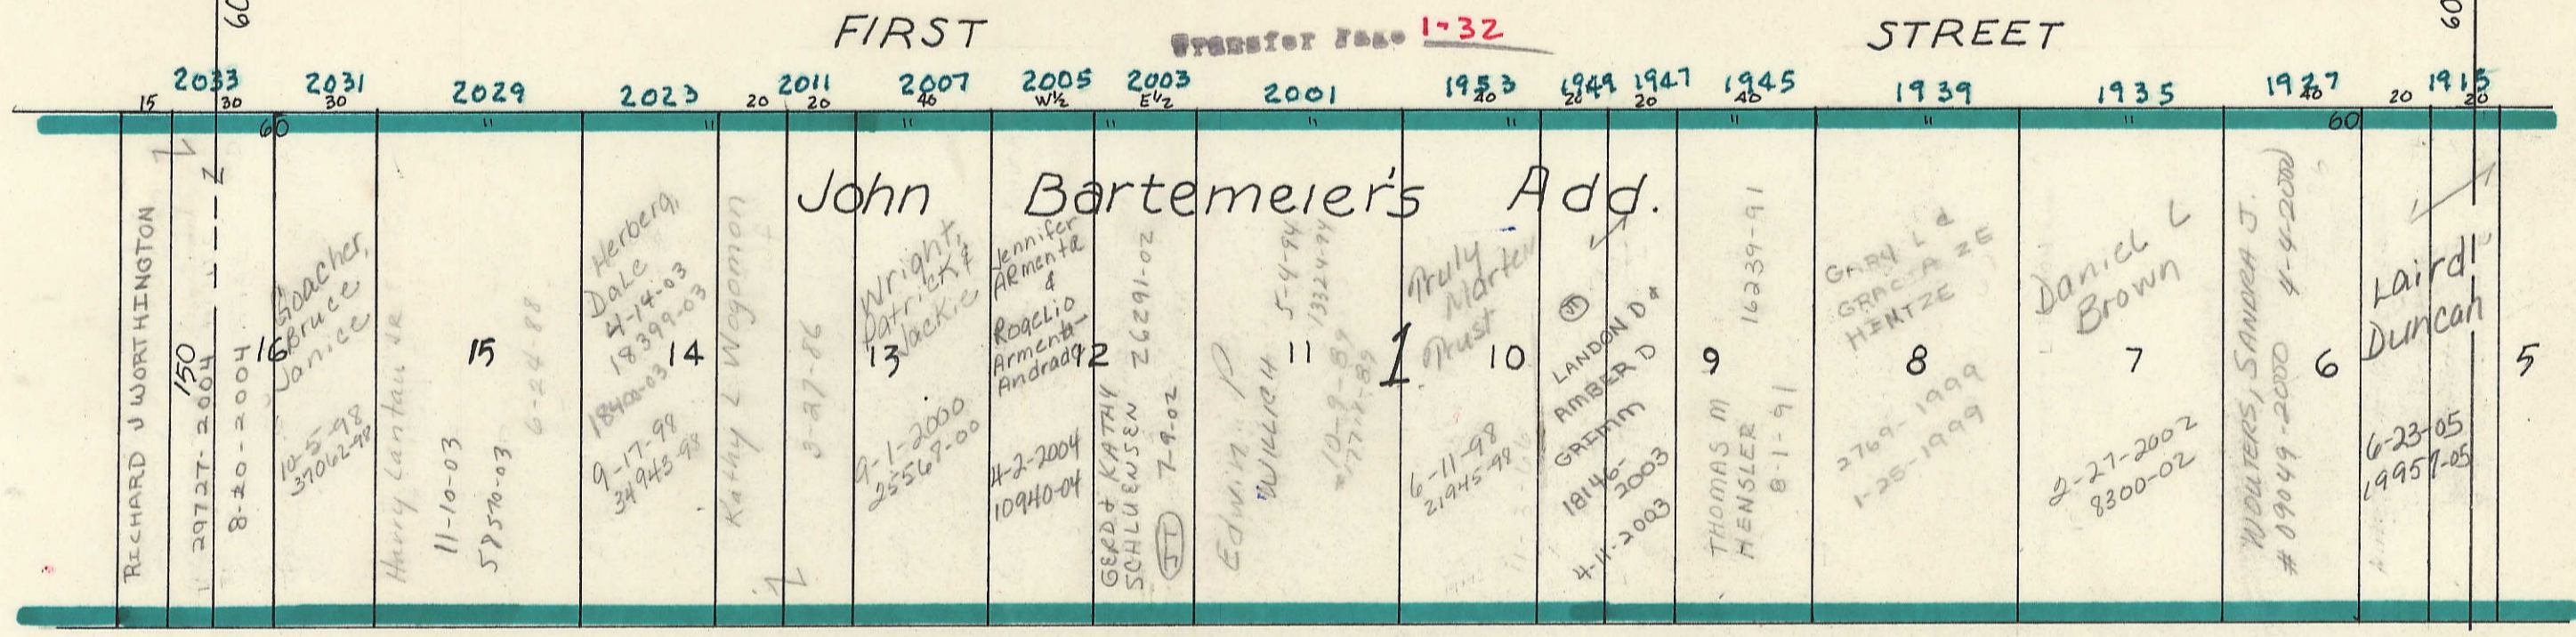 60
60
FIRST
Transfer Page 1-32
STREET
2033
2031
2029
2023
2011
2007
2005
2003
2001
1953
1949
1947
1945
1939
1935
1927
1915
15
30
30
20
20
40
W½
E½
40
20
20
40
40
20
20
60
"
"
"
"
"
"
"
"
"
60
John Bartemeier's Add.
RICHARD J WORTHINGTON
150
29727-2004
8-20-2004
16
Goacher,
Bruce
Janice
10-5-98
37062-98
15
11-10-03
58570-03
6-24-88
Herberg,
Dale
4-14-03
18399-03
18400-03
14
9-17-98
34943-98
Kathy L Wagamon
3-27-86
Wright,
Patrick &
Jackie
13
9-1-2000
25568-00
Jennifer
Armenta
&
Rogelio
Armenta-
Andrade
4-2-2004
10940-04
12
GERD & KATHY
SCHLUENSEN
26291-02
7-9-02
JT
Edwin P.
WILLICH
5-4-94
13324-94
10-9-89
11
1
Truly
Marten
Trust
10
6-11-98
21945-98
LANDON D &
AMBER D
GRIMM
18146-
2003
4-11-2003
9
16239-91
THOMAS M
HENSLER
8-1-91
GARY L &
HENTZE
8
2769-1999
1-25-1999
Daniel L
Brown
7
2-27-2002
8300-02
WOUTERS, SANDRA J.
# 09049-2000 4-4-2000
6
Laird
Duncan
6-23-05
19957-05
5